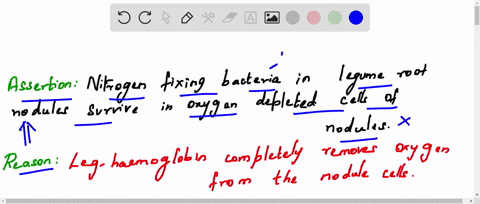 Assertion: Nitrogen fixing bacteria in legume root
nodules survive in oxygen depleted cells of
nodules. ×
Reason: Leg-haemoglobin completely removes oxygen
from the nodule cells.